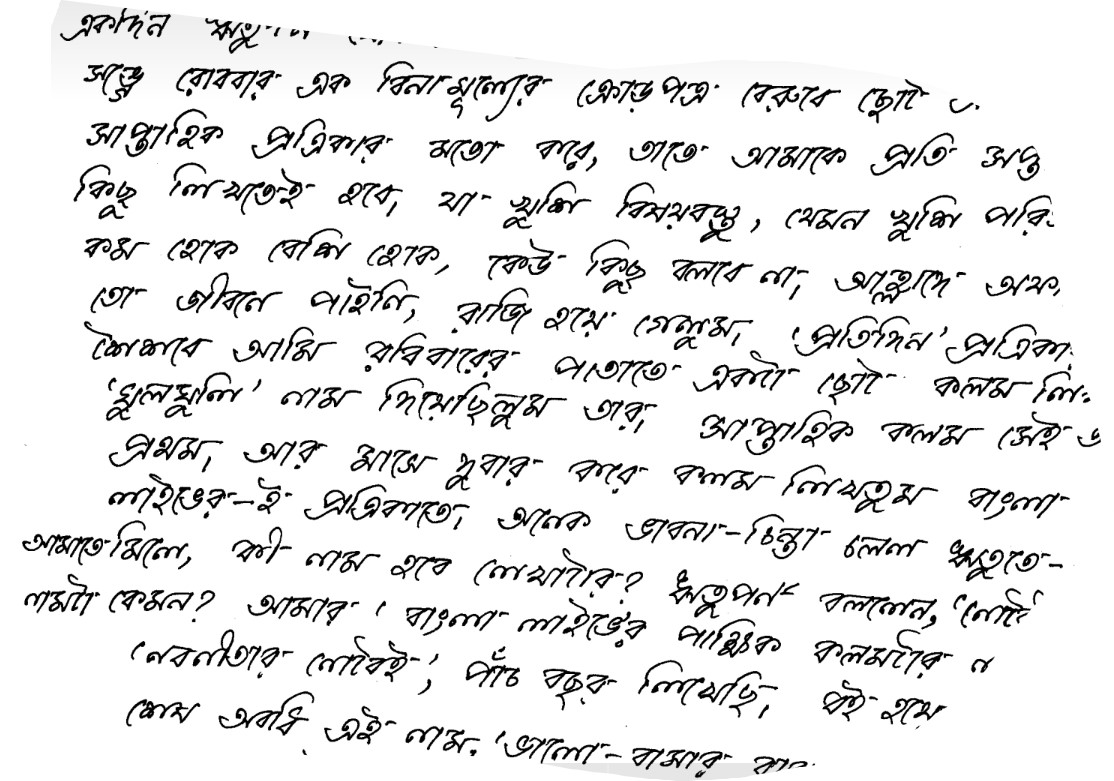 একদিন ঋতুপর্ণ
সঙ্গে রোববার এক বিনামূল্যের ক্রোড়পত্র বেরুবে ছোট
সাপ্তাহিক পত্রিকার মতো করে, তাতে আমাকে প্রতি সপ্ত
কিছু লিখতেই হবে, যা খুশি বিষয়বস্তু, যেমন খুশি পরি
কম হোক বেশি হোক, কেউ কিছু বলবে না, আহ্লাদে
তো জীবনে পাইনি, রাজি হয়ে গেলুম, 'প্রতিদিন' পত্রিকা
শৈশবে আমি রবিবারের পাতাতে একটা ছোট কলম লি
'ঘুলঘুলি' নাম দিয়েছিলুম তার, সাপ্তাহিক কলম সেই
প্রথম, আর মাসে দুবার করে কলম লিখতুম বাংলা
লাইভের-ই পত্রিকাতে, অনেক ভাবনা-চিন্তা চলল ঋতুতে-
আমাতে মিলে, কী নাম হবে লেখাটার? ঋতুপর্ণ বললেন,
নামটা কেমন? আমার 'বাংলা লাইভের পাক্ষিক কলমটার ন
'নবনীতার নোটবই', পাঁচ বছর লিখেছি, বই হয়ে
শেষ অবধি এই নাম. 'ভালো-বাসার